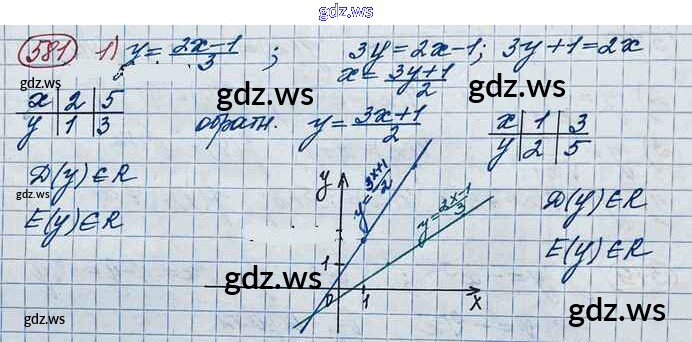 gdz.ws
581 1) y = (2x-1)/3 ; 3y = 2x-1; 3y+1 = 2x
gdz.ws
x = (3y+1)/2
gdz.ws
gdz.ws
x | 2 | 5
y | 1 | 3
обратн. y = (3x+1)/2
x | 1 | 3
y | 2 | 5
gdz.ws
D(y)∈R
E(y)∈R
y
y = (3x+1)/2
y = (2x-1)/3
D(y)∈R
E(y)∈R
gdz.ws
gdz.ws
gdz.ws
1
0
1
x
gdz.ws
gdz.ws
gdz.ws